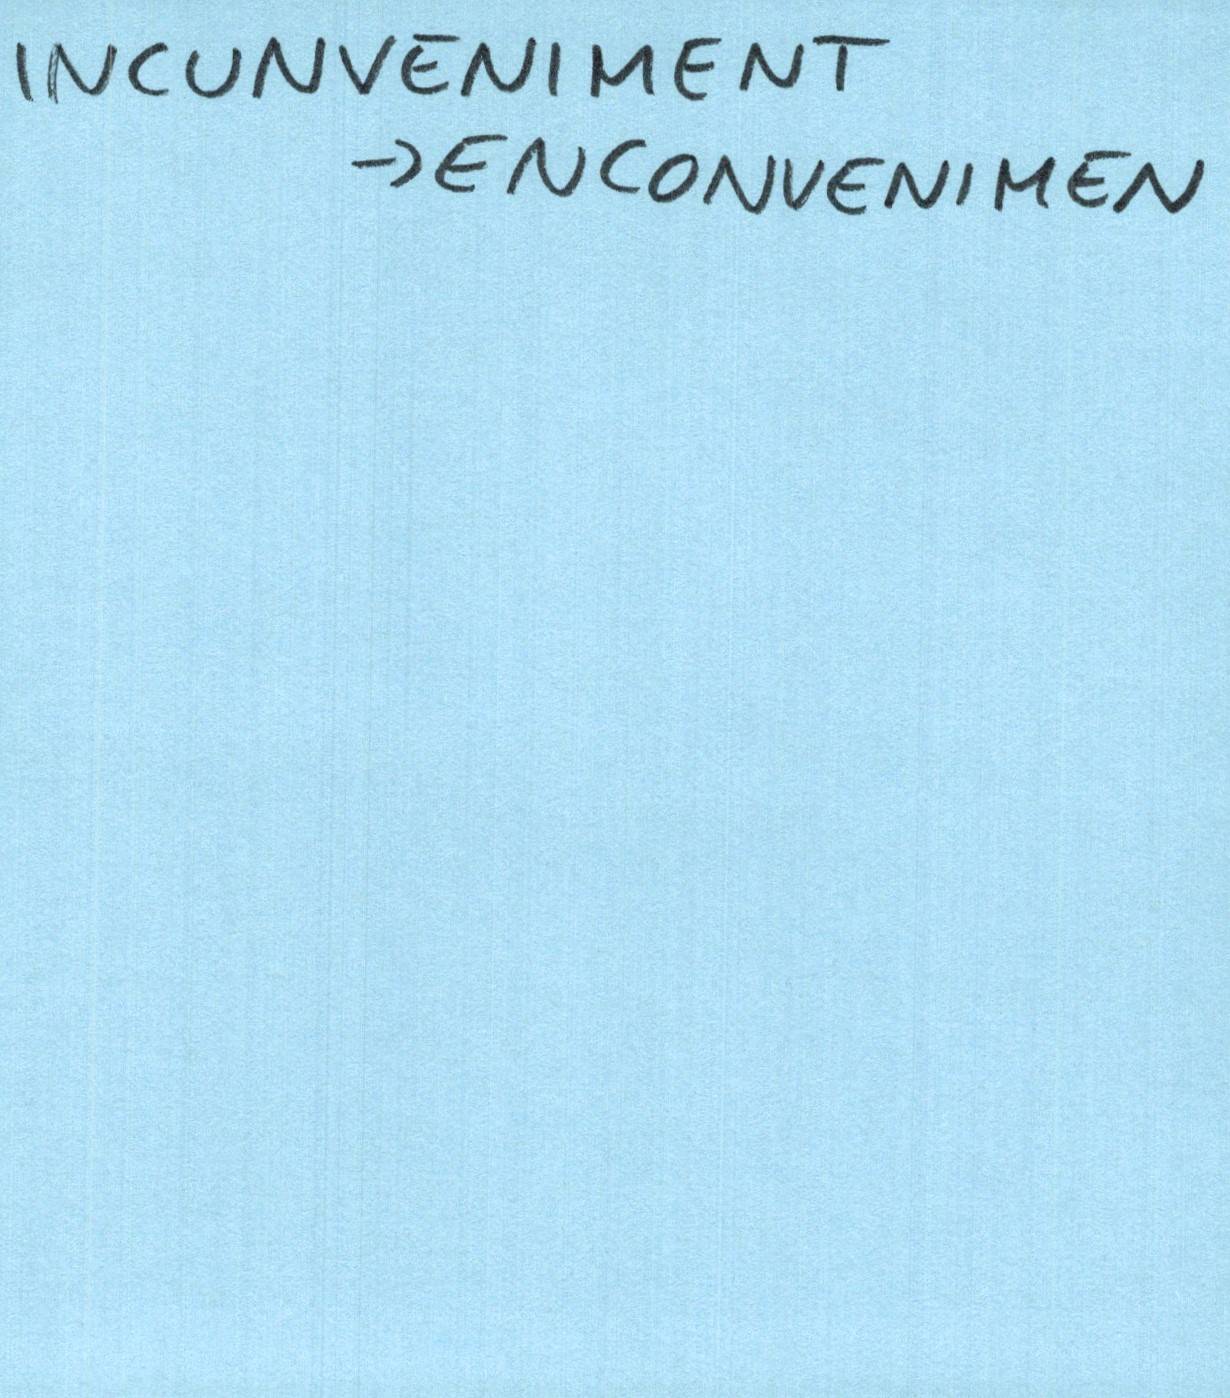 INCUNVENIMENT
→ENCONVENIMEN